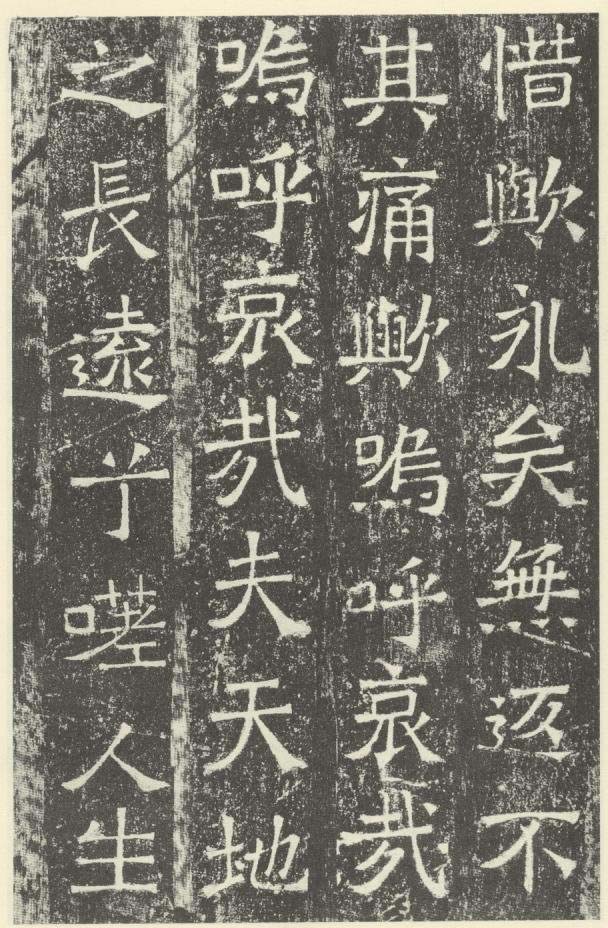 惜歟永矣無返不
其痛歟嗚呼哀哉
嗚呼哀哉夫天地
之長遠乎嗟人生